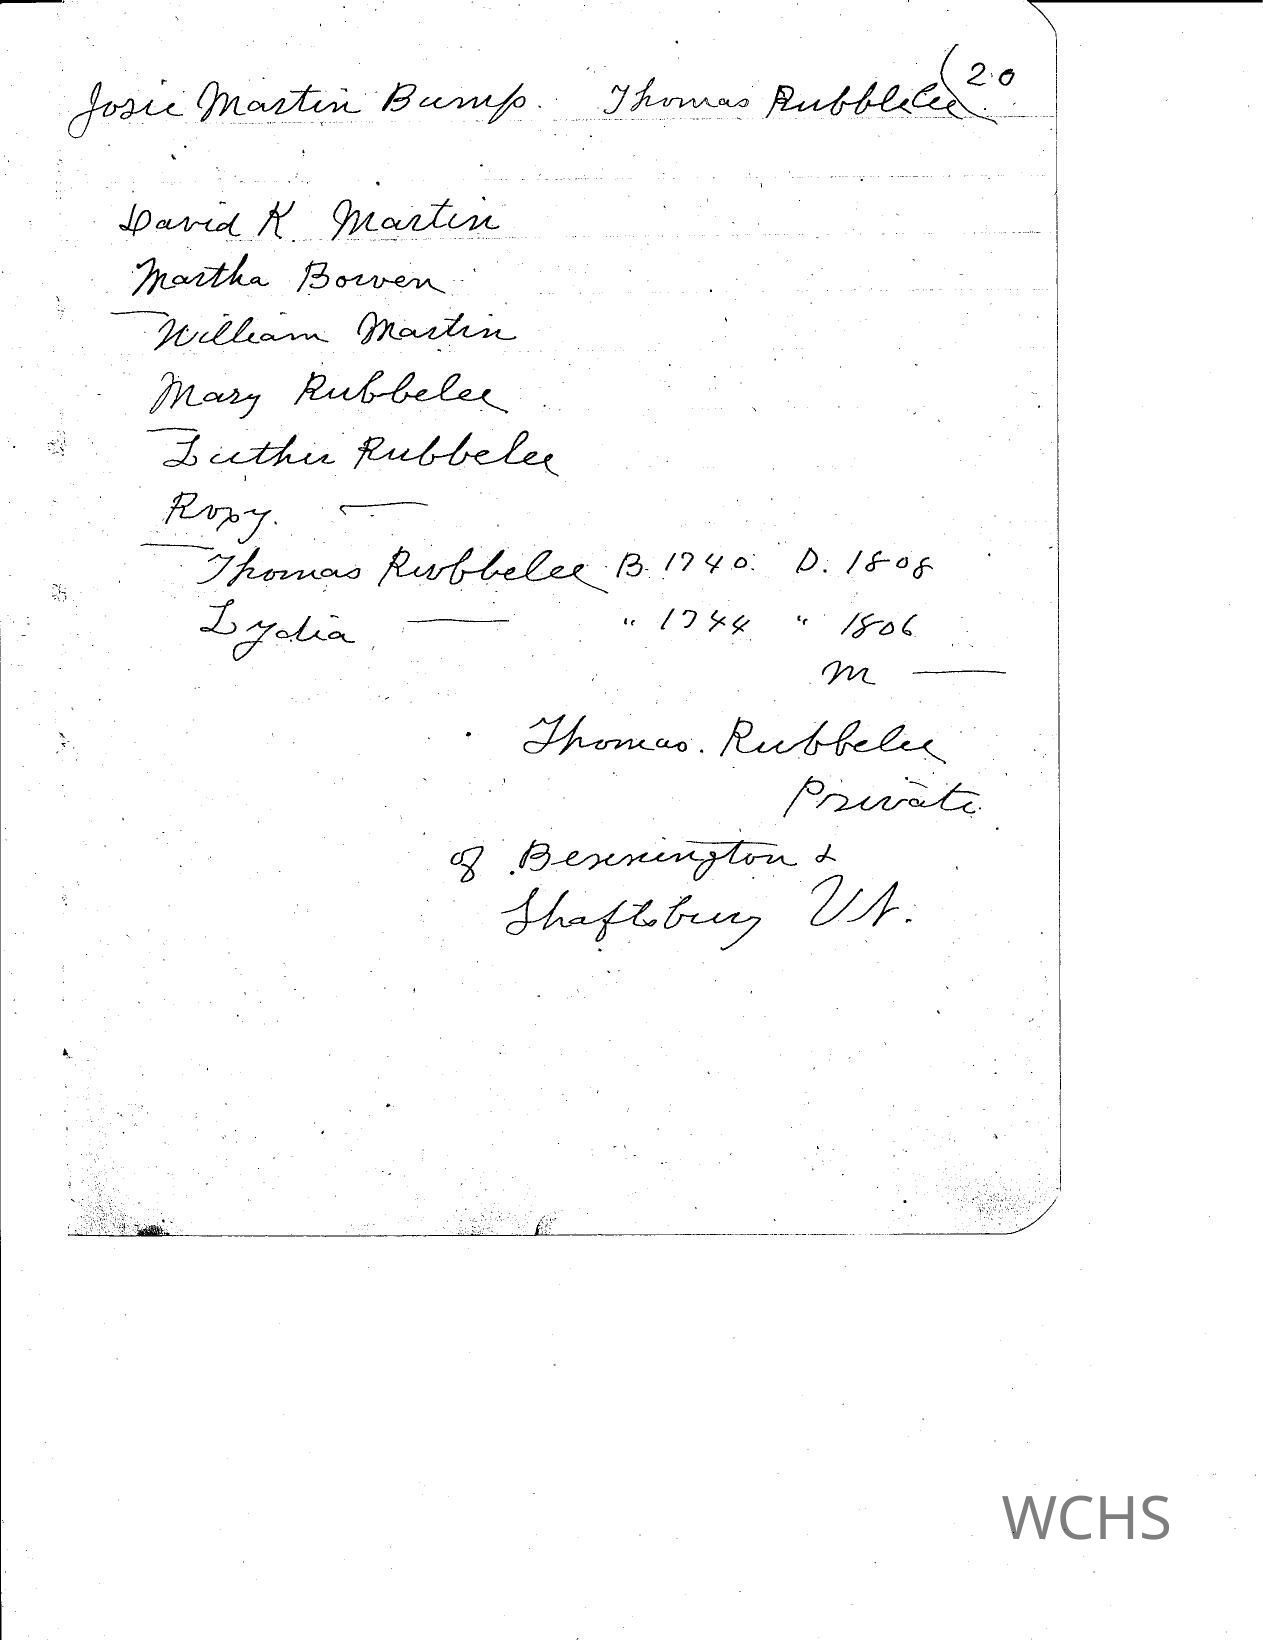 20
Josie Martin Bump. Thomas Rubblelee.
David K. Martin
Martha Bowen
William Martin
Mary Rubbelee
Luther Rubbelee
Roxy. —
Thomas Rubbelee B. 1740. D. 1808
Lydia — " 1744 " 1806
M —
Thomas. Rubbelee
Private
of Bennington &
Shaftsbury Vt.
WCHS